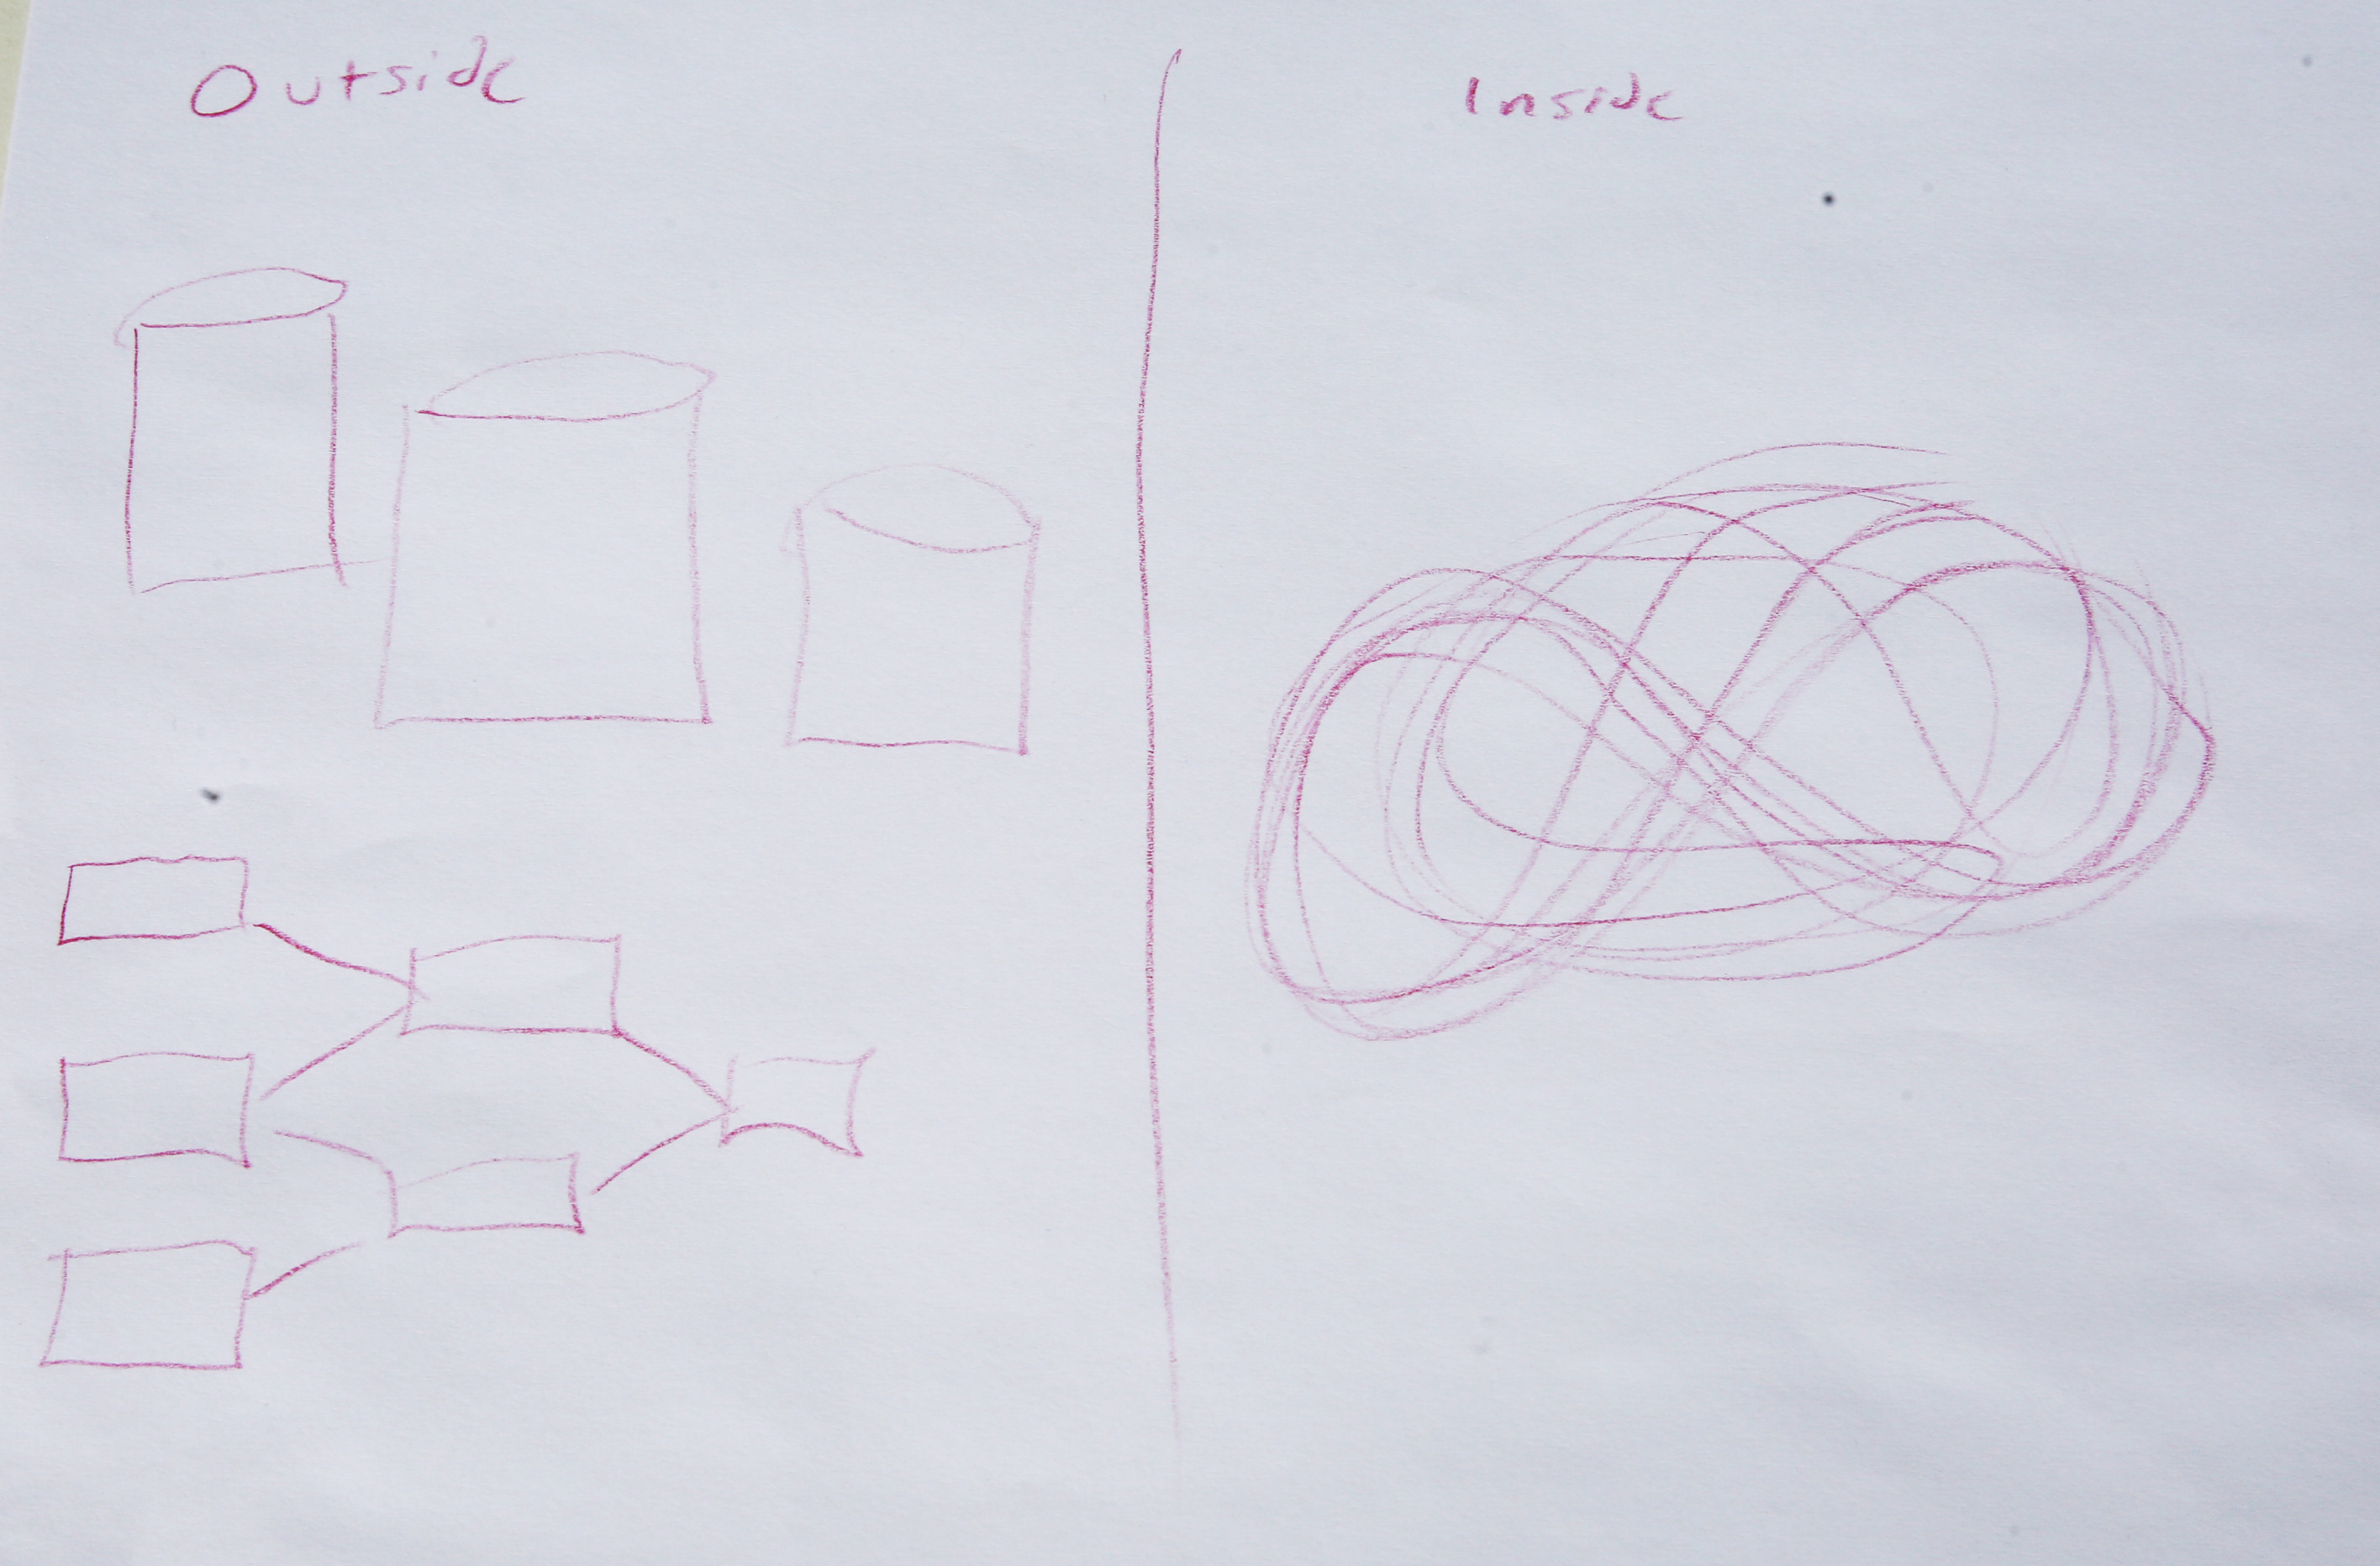 Outside
Inside